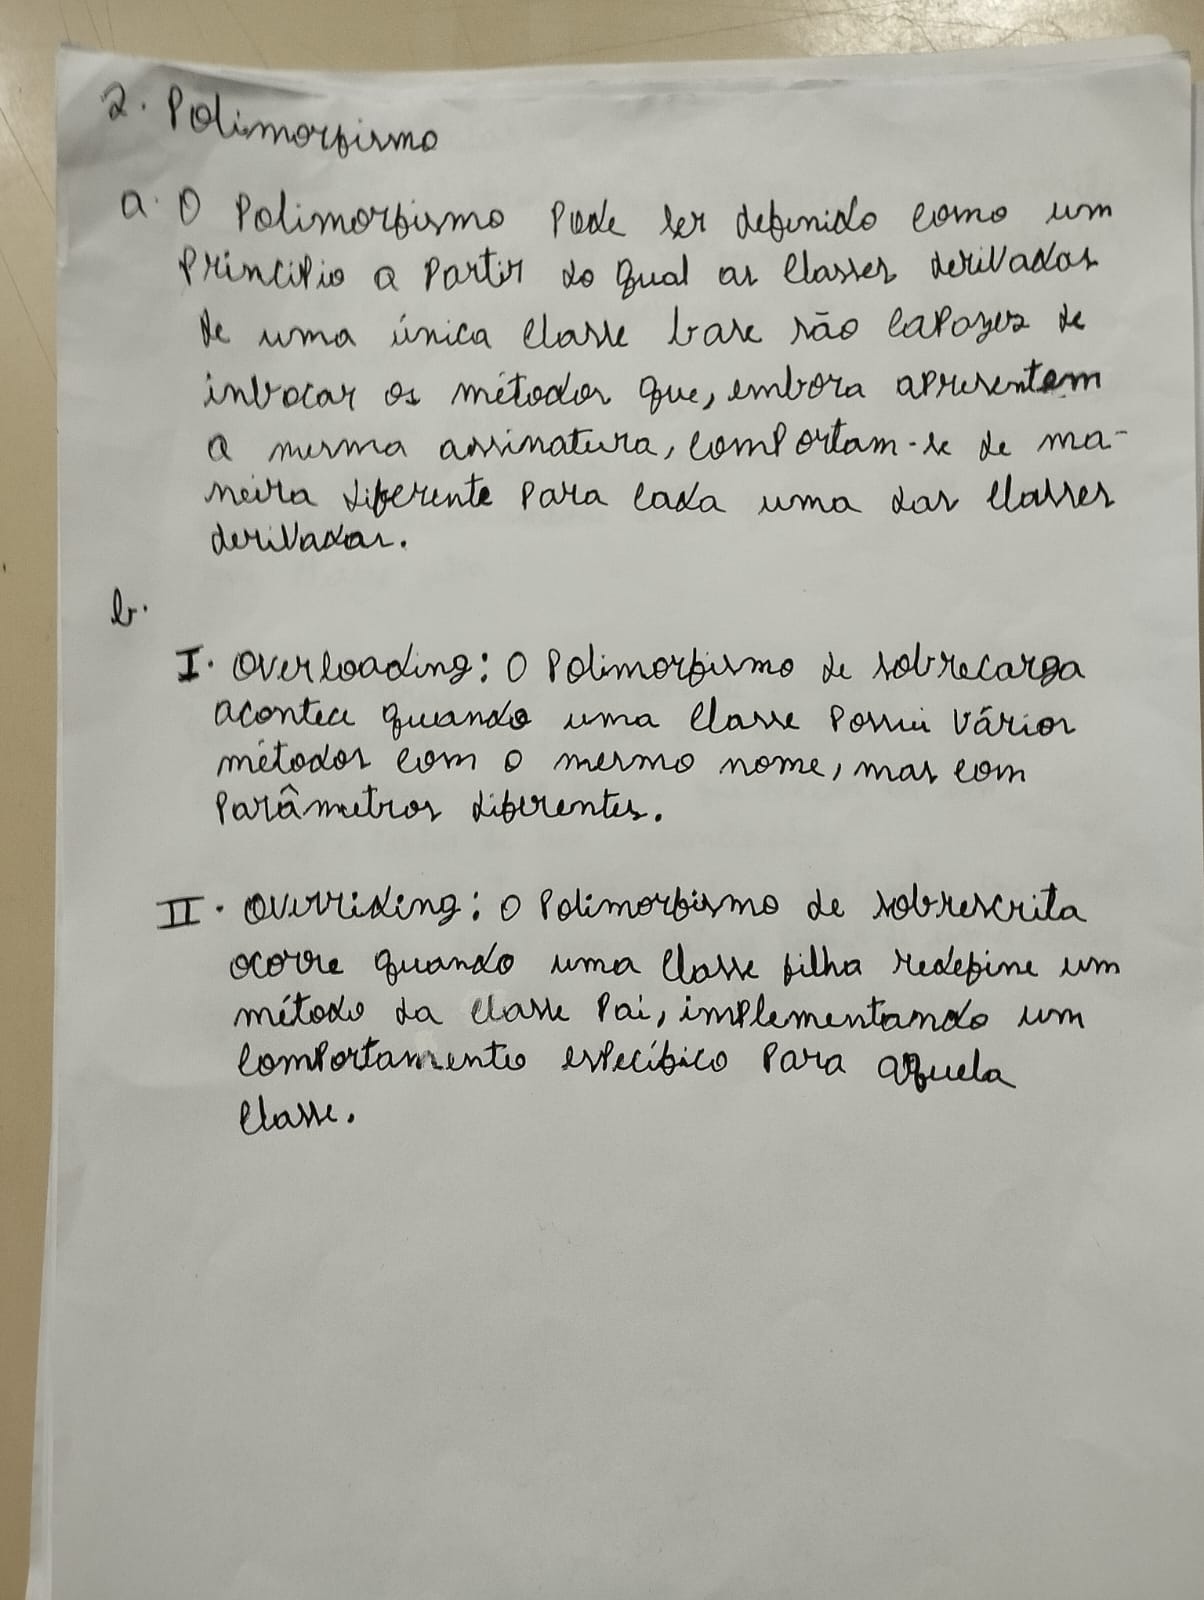 2. Polimorfismo
a. O Polimorfismo Pode ser definido como um
Princípio a Partir do qual as Classes derivadas
de uma única Classe base são Capazes de
invocar os métodos que, embora apresentem
a mesma assinatura, comportam-se de ma-
neira diferente Para Cada uma das Classes
derivadas.
b.
I. Overloading: O Polimorfismo de sobrecarga
acontece quando uma Classe Possui Vários
métodos com o mesmo nome, mas com
Parâmetros diferentes.
II. Overriding: O Polimorfismo de sobrescrita
ocorre quando uma Classe filha redefine um
método da Classe Pai, implementando um
Comportamento específico Para aquela
Classe.